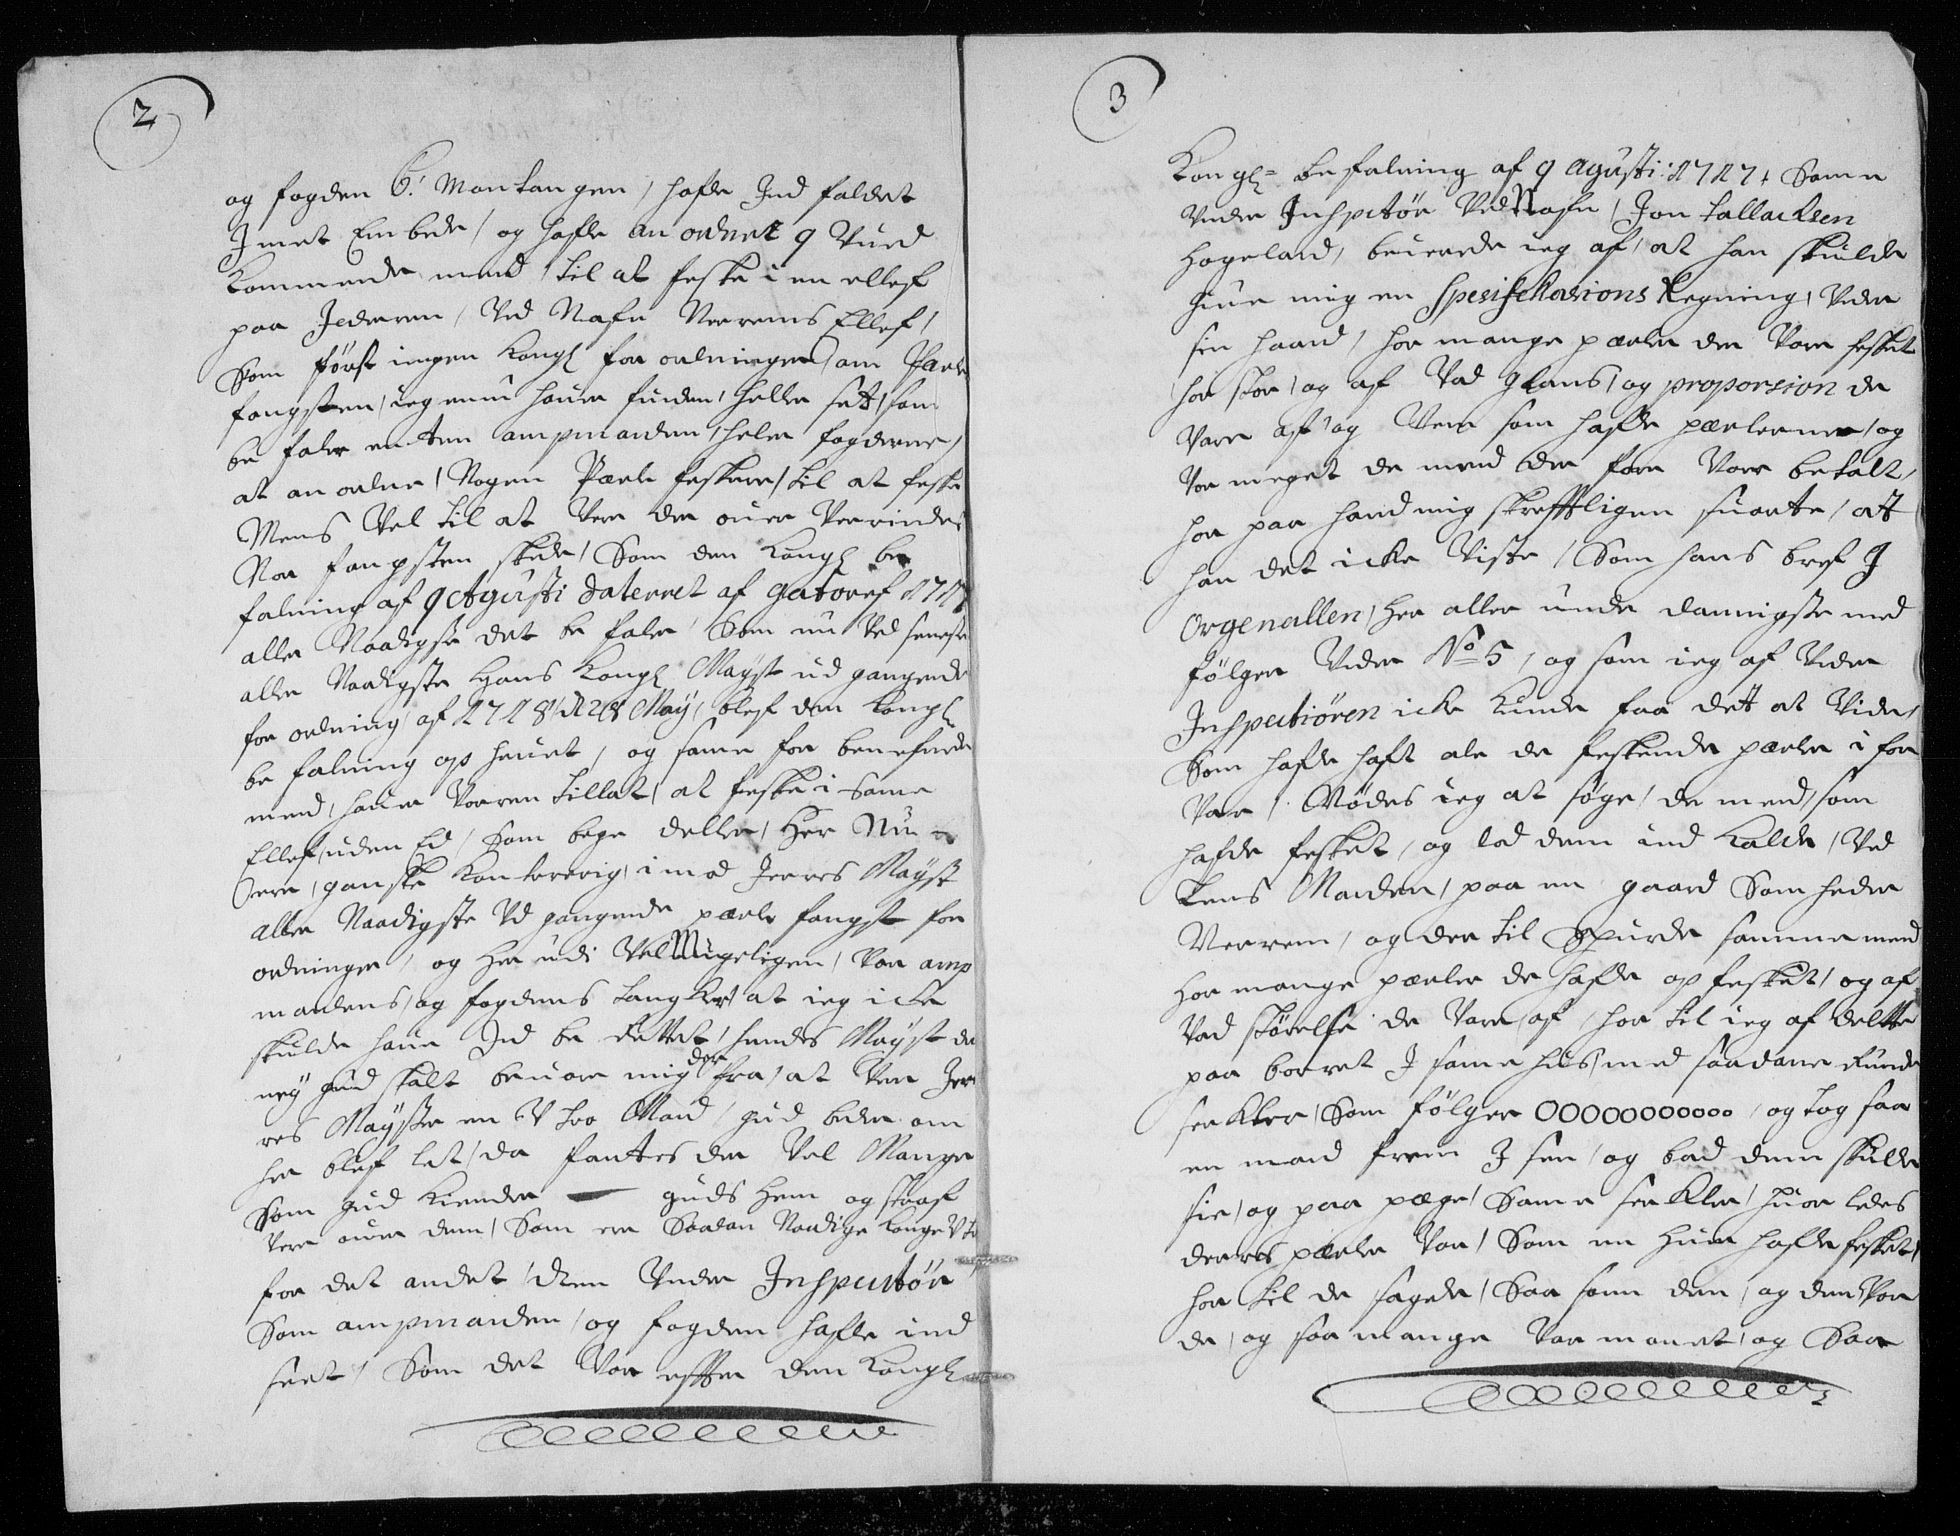 2
og fogden B: Montangen / hafde Ind faldet
I met Embede / og hafde an ordnet 9 Vued
kommende mend / til at feske i en ellef
paa Jederen / Ved Nafn Veerems Ellef /
Som först ingen kongl for ordninger / om Perle
fangsten / ieg enu hauer finden / heller sett / som
be faler enten ampmanden / heler fogderne /
at an ordne / Nogen Perle feskere / til at feske
Mens Vel til at Vere der ouer Veerindes
Nor fangsten skeder / Som den kongl be
falning af 9 Agusti daterret af gatorf 1717
aller Naadigste det be faler Som nu Ved seneste
aller Naadigste Hans kongl Mayst ud gangende
for ordning af 1718 d 28 May / blef den kongl
be falning op heuet / og same for benefnede
mend / hauer Verren tillat / at feske i same
Ellef / uden Ed / Som bege deller / Her Nu
Vere / ganske kontrerig / i mod Jerres Mayst
aller Naadigste Vd gangende perle fangst for
ordninger / og her udi Vel Mugeligen / Var amp
mandens / og fogdens tanker / at ieg icke
skulde haue Ind be rettet / hendes Mayst de
ney gud skalt beuare mig der fra / at Vere Jer
res Mayster en V tro Mand / gud bedre om
her blef let / da fantes der Vel Mange
Som gud kiender — guds Hem og straf
Vere ouer dem / Som er Saadan Naadige konge V tro
for det andet / den Vnder Inspectör
Som ampmanden / og fogden hafde ind
seet / Som det Var effter den kongl
3
Kongl= befalning af 9 Agusti: 1717 + Same
Vnder Inspetör Ved Nafn / Jon tallacksen
Hogeland / beuerede ieg af / at han skulde
giue mig en Spesifekasions Regning / Vnder
sin haand / hor mange perler der Vare fesket
hor store / og af Vad glans / og proporsion de
Vare af / og Vem som hafde perlerne / og
Vor meget de mend der fore Var betalt /
hor paa hand mig skrefftligen suarte / att
han det icke Viste / Som hans bref I
Orgenallen / Her aller under dannigste med
fölger Vnder No 5 / og som ieg af Vnder
Inspectiören icke kunde faa dett at Vide /
Som hafde haft ale de feskende perler i for
Var / Nödes ieg at söge / de mend / som
hafde fesket / og lod dem ind kalde / Ved
Lens Manden / paa en gaard Som heder
Veerem / og der til Spurde samme mend
Hor mange perler de hafde op fesket / og af
Vad störelse de Vare af / hor til ieg af delte
paa borret I same hus / med saadane Runde
serkler / Som fölger OOOOOOOOOOOO / og tog saa
en mand frem I sen / og bad dem skulle
sie / og paa pege / Same serkler / huor ledes
derres perler Var / Som en huer hafde fesket /
hor til de sagde / Saa som den / og den Var
de / og saa mange Var manet / og Saa